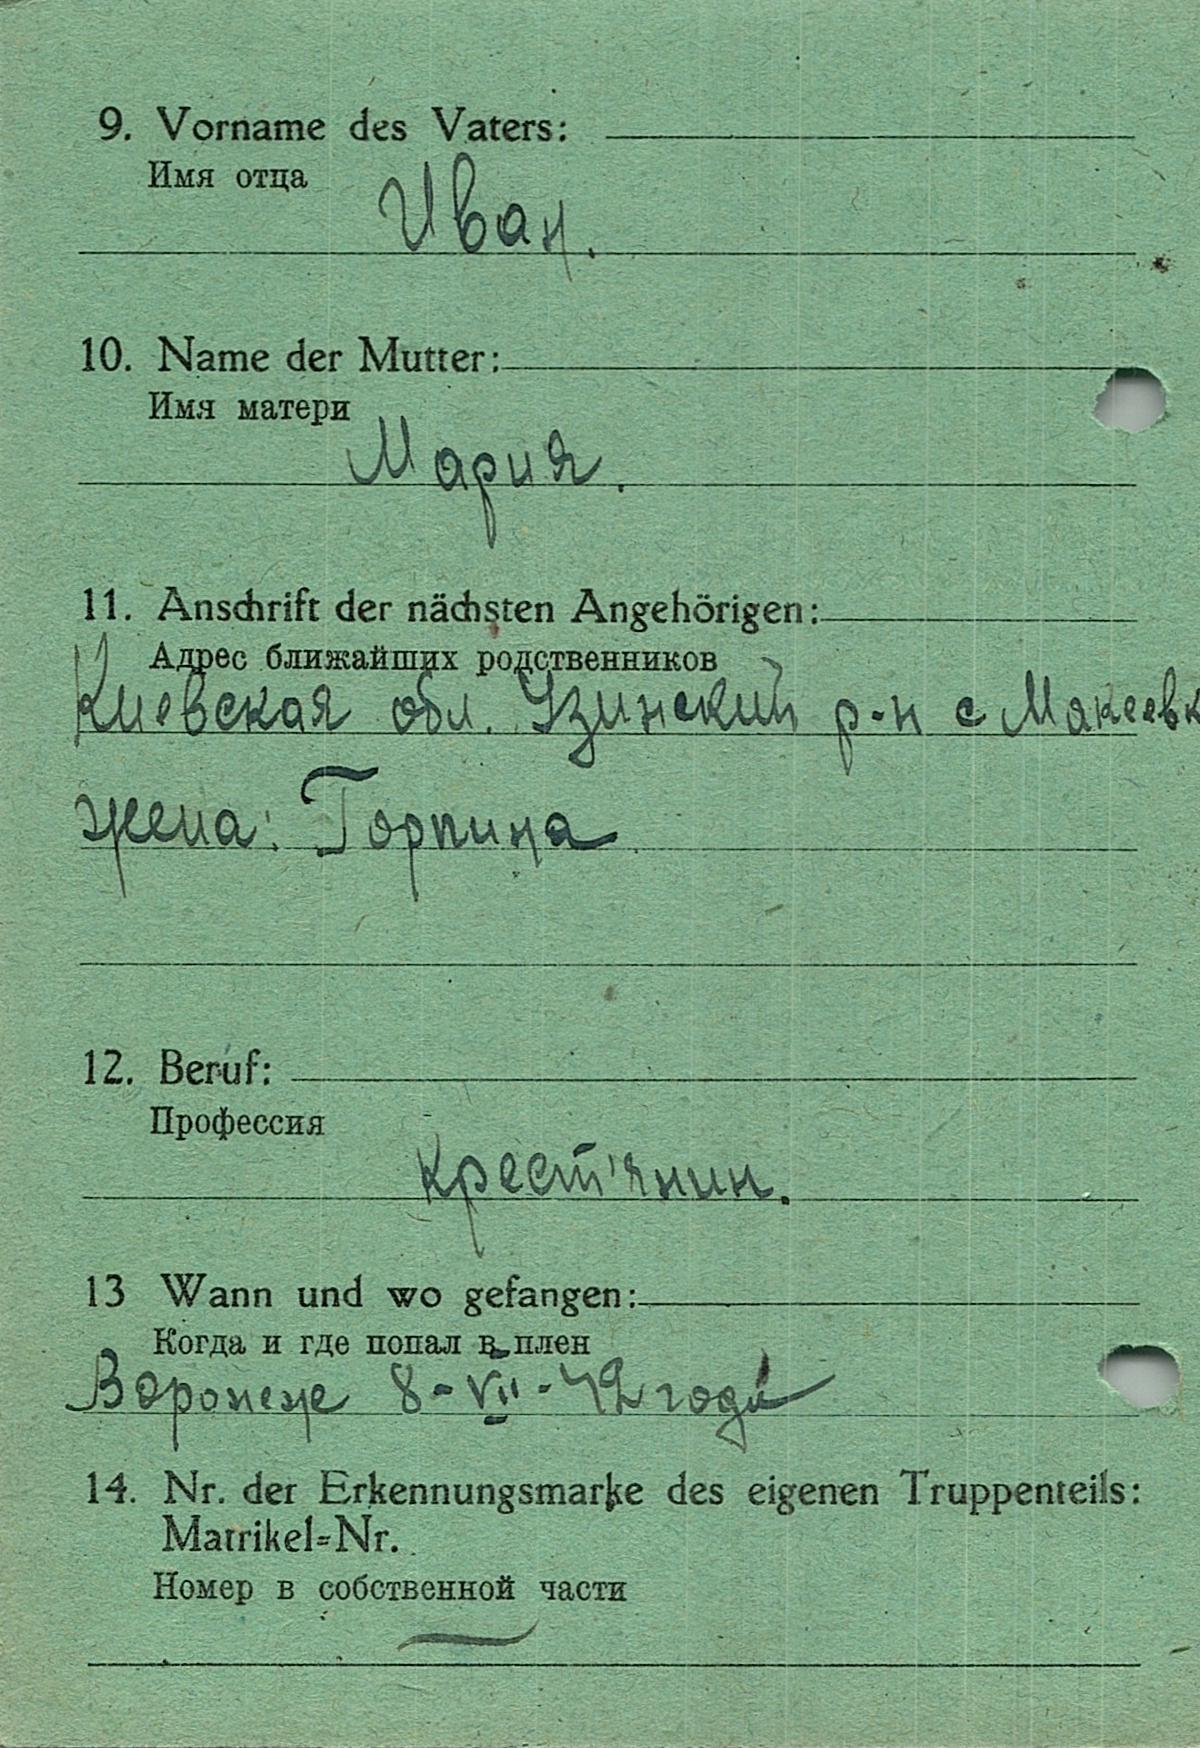 9. Vorname des Vaters:
Имя отца
Иван.
10. Name der Mutter:
Имя матери
Мария.
11. Anschrift der nächsten Angehörigen:
Адрес ближайших родственников
Киевская обл. Узинский р-н с Макеевк
жена: Горпина
12. Beruf:
Профессия
крест'янин.
13 Wann und wo gefangen:
Когда и где попал в плен
Воронеже 8-VII-42 года
14. Nr. der Erkennungsmarke des eigenen Truppenteils:
Matrikel=Nr.
Номер в собственной части